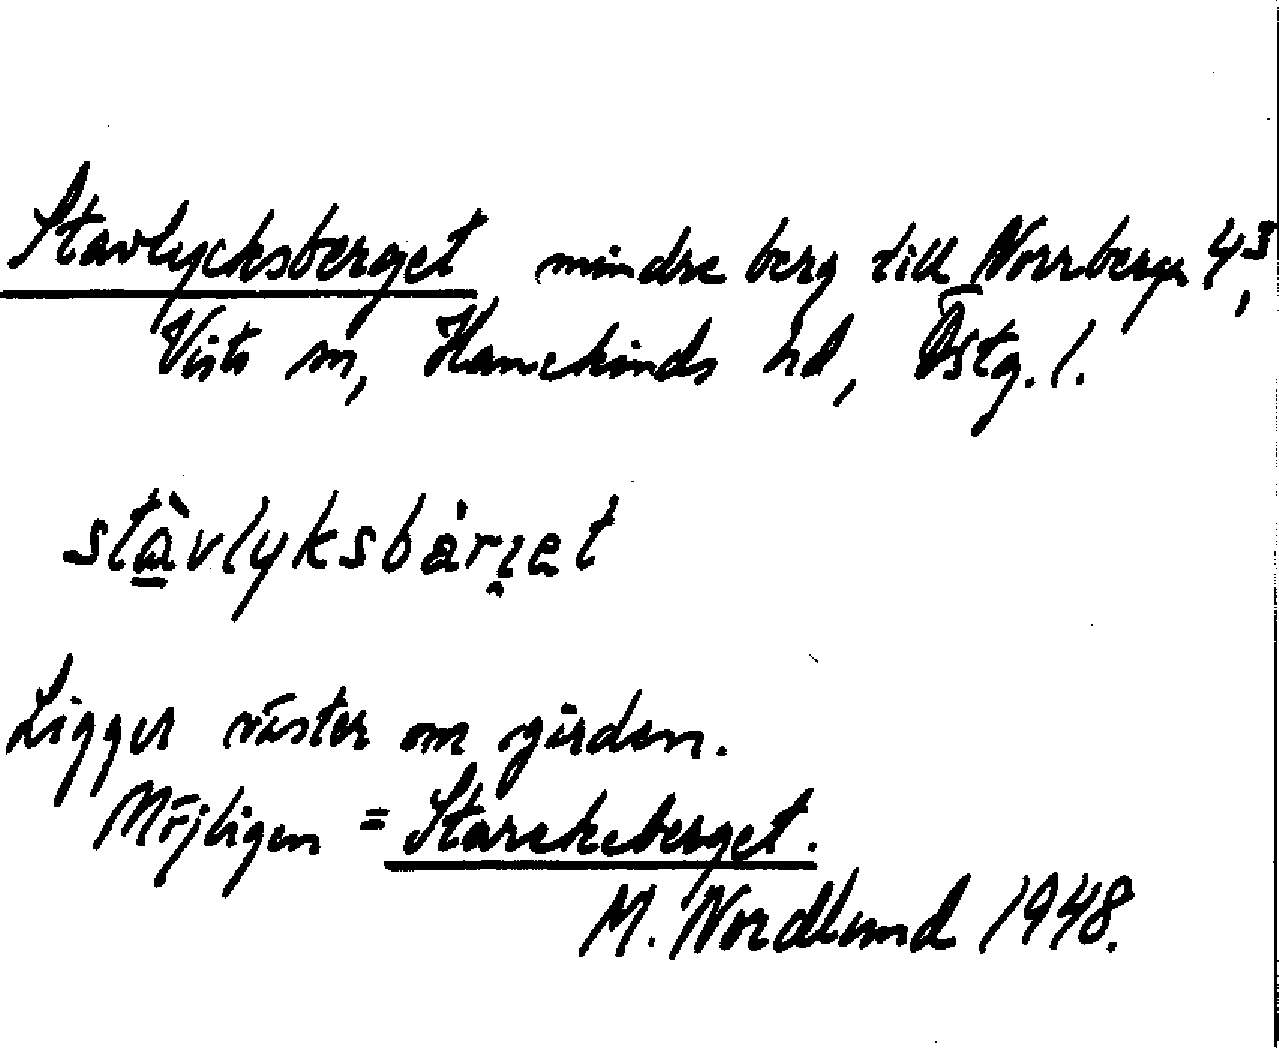 Stavlycksberget mindre berg till Norrberga 4³,
Vists sn, Hanekinds hd, Östg. l.
stàvlyksbärjet
Ligger väster om gården.
Möjligen = Starckeberget.
M. Nordlund 1948.